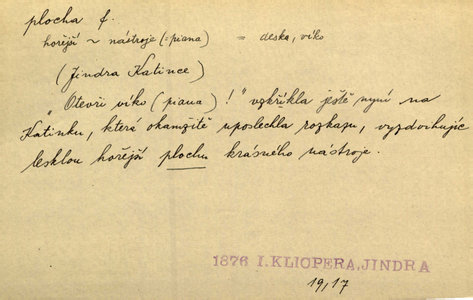 plocha f.
hořejší ~ nástroje (=piana) = deska, víko
(Jindra Katince)
„Otevři víko (piana)!" vzkřikla ještě nyní na
Katinku, která okamžitě uposlechla rozkazu, vyzdvihujíc
lesklou hořejší plochu krásného nástroje.
1876 I. KLIOPERA, JINDRA
19, 17